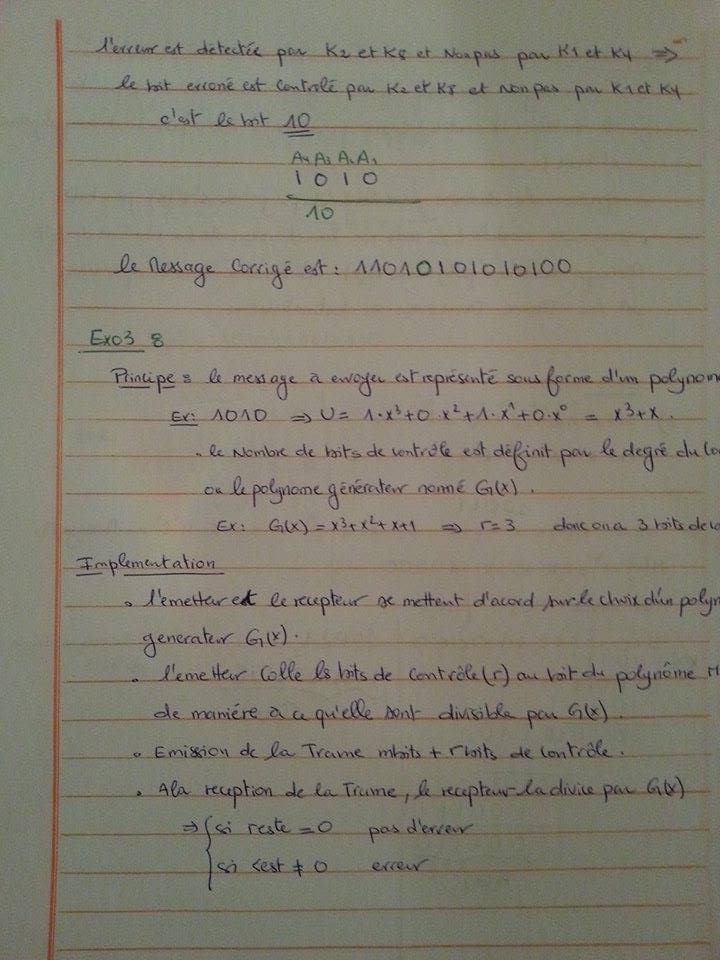 l'erreur est détectée par K2 et K8 et Non pas par K1 et K4 ⇒
le bit erroné est controlé par K2 et K8 et non pas par K1 et K4
c'est le bit 10
A4 A3 A2 A1
1 0 1 0
10
le Message Corrigé est : 11010101010100
Exo3 8
Principe : le message à envoyer est représenté sous forme d'un polynome
Ex: 1010 ⇒ U = 1·x³+0·x²+1·x¹+0·x⁰ = x³+x.
. le Nombre de bits de contrôle est définit par le degré du
ou le polynome générateur nommé G(x).
Ex: G(x) = x³+x²+x+1 ⇒ r=3 donc on a 3 bits de
Implementation
. l'emetteur et le recepteur se mettent d'acord sur le choix d'un polyn
generateur G(x).
. l'emetteur Colle ls bits de Contrôle(r) au bit du polynôme M
de maniére à ce qu'elle sont divisible par G(x).
. Emission de la Trame mbits + rbits de contrôle.
. A la reception de la Trame, le recepteur la divice par G(x)
⇒ { si reste = 0 pas d'erreur
si rest ≠ 0 erreur